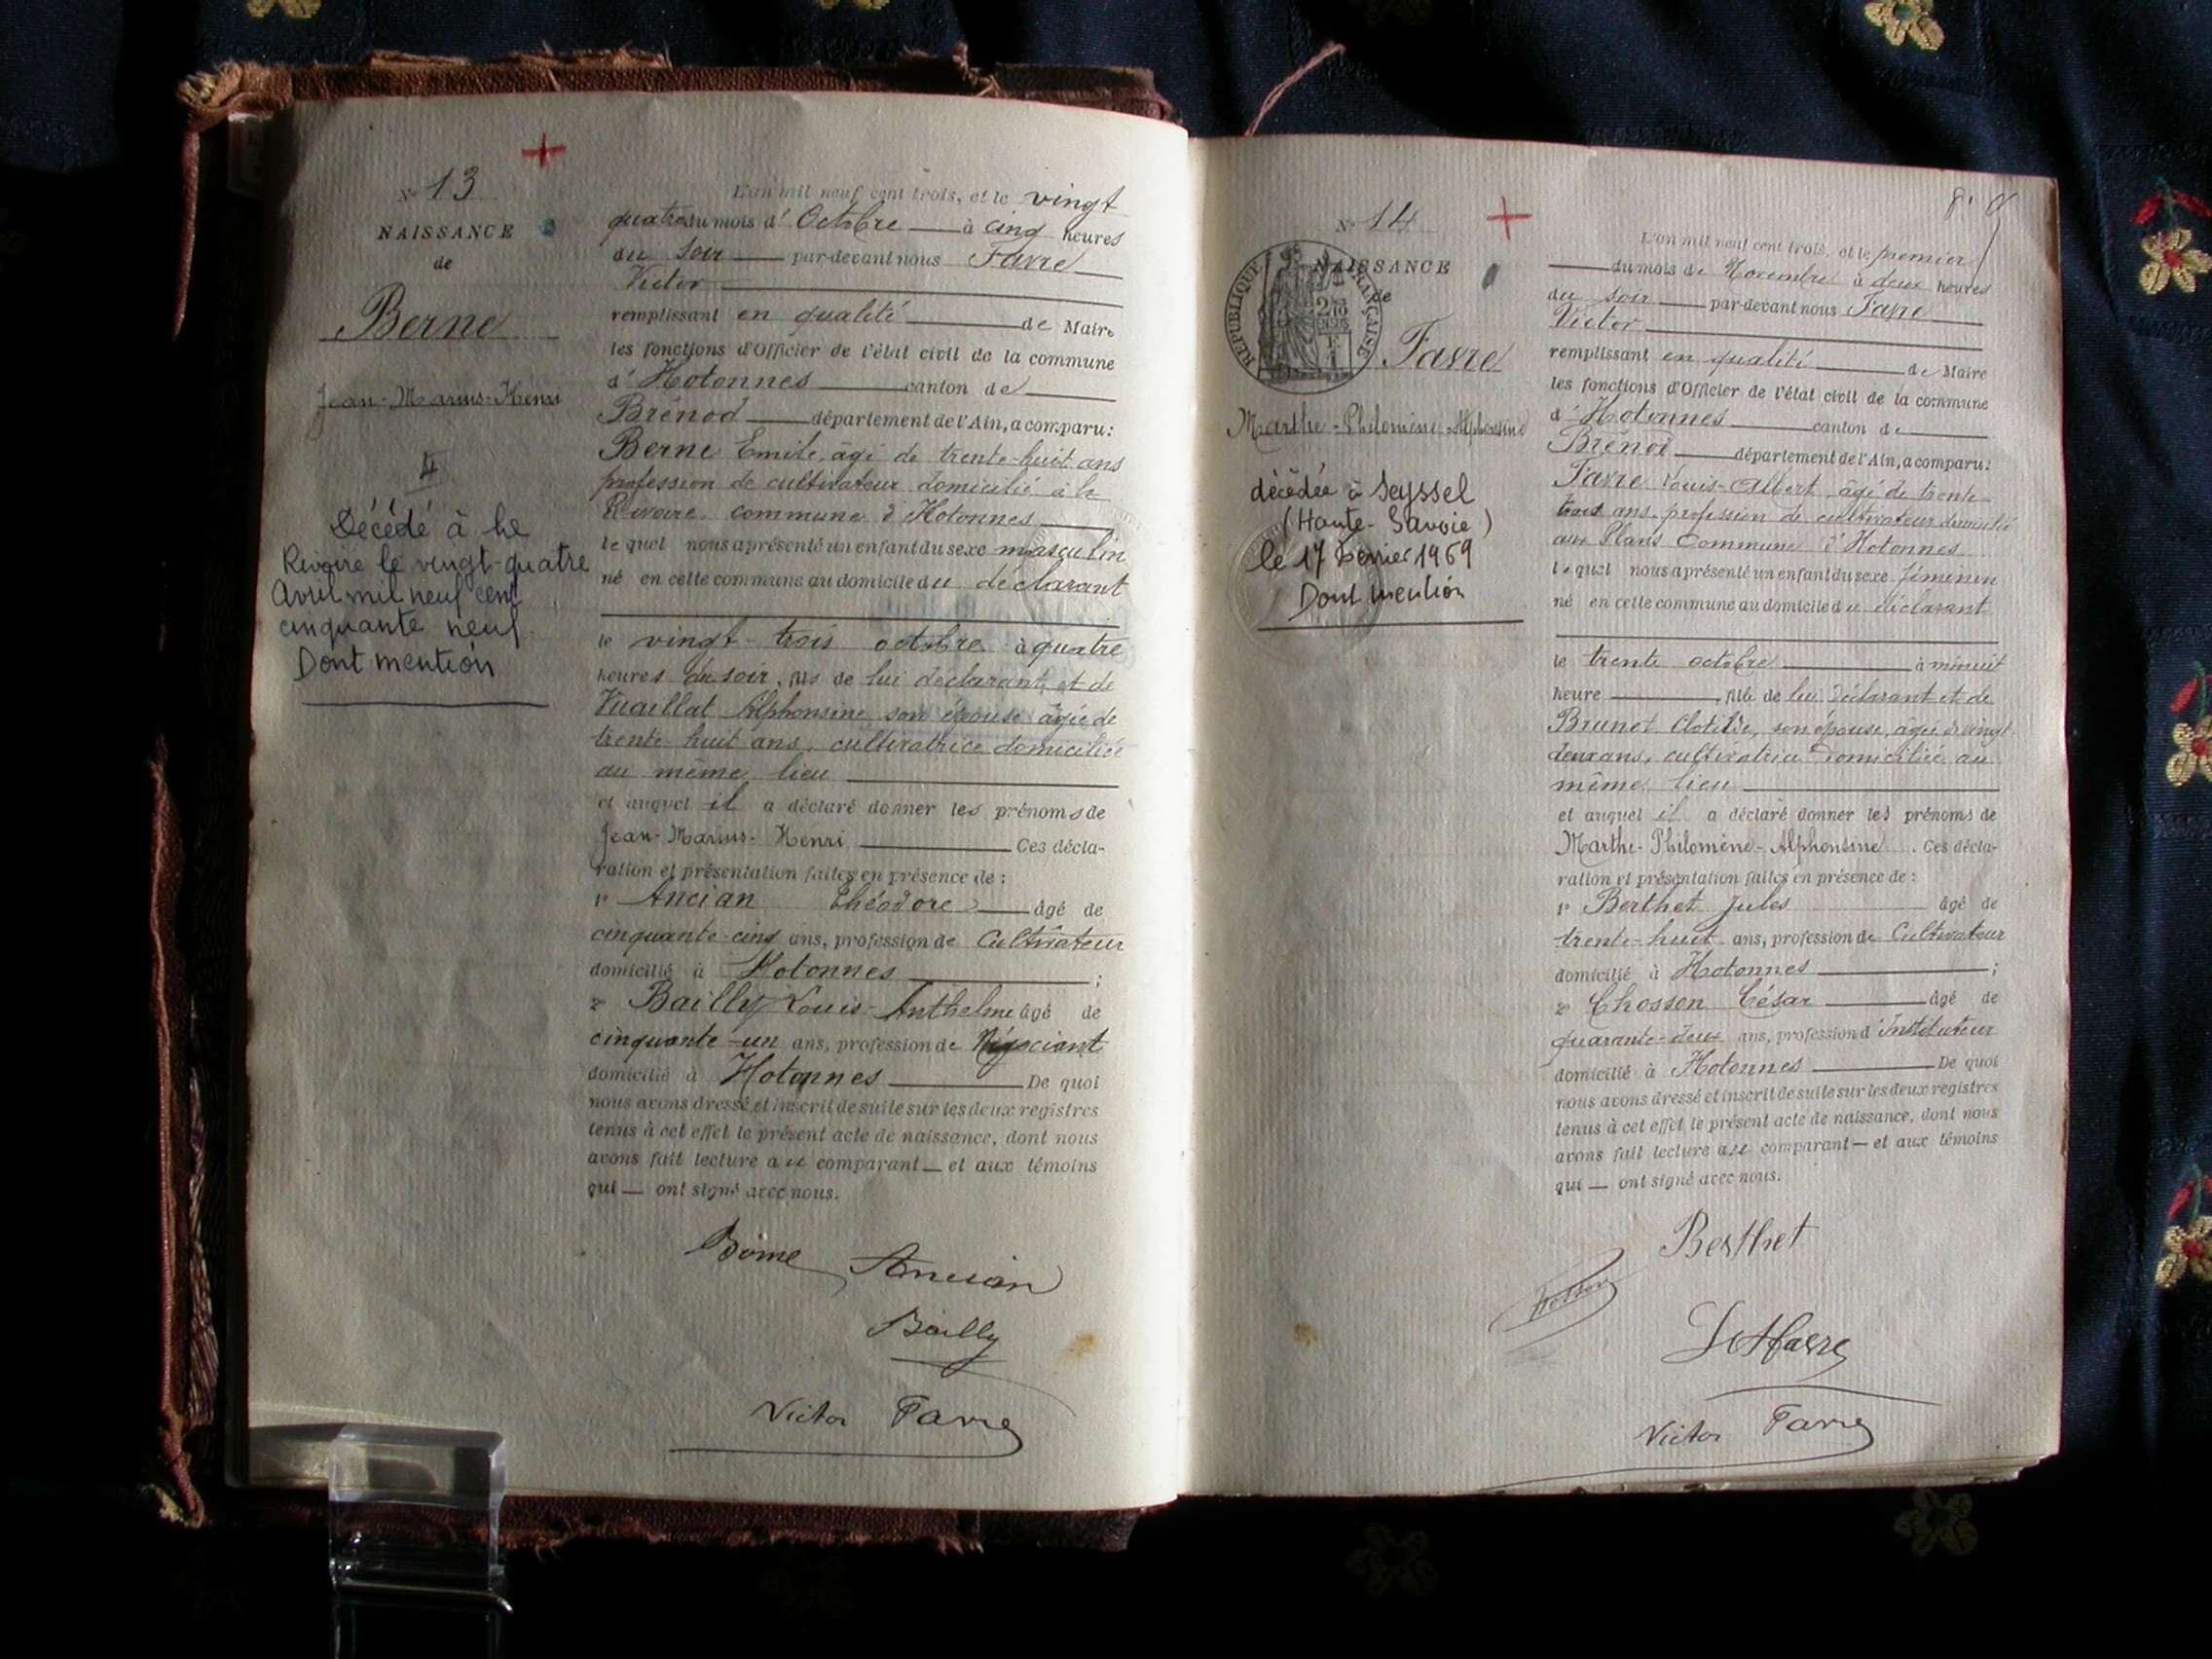 N° 13
NAISSANCE
de
Berne
Jean-Marius-Henri
4
Décédé à la
Rivoire le vingt-quatre
Avril mil neuf cent
cinquante neuf
Dont mention
L'an mil neuf cent trois, et le vingt
quatre du mois d' Octobre à cinq heures
du soir par-devant nous Favre
Victor
remplissant en qualité de Maire
les fonctions d'Officier de l'état civil de la commune
d' Hotonnes canton de
Brénod département de l'Ain, a comparu:
Berne Emile, âgé de trente-huit ans
profession de cultivateur domicilié à la
Rivoire, commune d'Hotonnes
lequel nous a présenté un enfant du sexe masculin
né en cette commune au domicile du déclarant
le vingt-trois octobre à quatre
heures du soir, fils de lui déclarant, et de
Vuaillat Alphonsine son épouse âgée de
trente huit ans, cultivatrice domiciliée
au même lieu
et auquel il a déclaré donner les prénoms de
Jean-Marius-Henri Ces décla-
ration et présentation faites en présence de :
1° Ancian Théodore âgé de
cinquante-cinq ans, profession de Cultivateur
domicilié à Hotonnes ;
2° Bailly Louis-Anthelme âgé de
cinquante-un ans, profession de Négociant
domicilié à Hotonnes De quoi
nous avons dressé et inscrit de suite sur les deux registres
tenus à cet effet le présent acte de naissance, dont nous
avons fait lecture au comparant et aux témoins
qui ont signé avec nous.
Ancian
Bailly
Victor Favre
N° 14
NAISSANCE
de
RÉPUBLIQUE FRANÇAISE
Favre
Marthe-Philomène-Alphonsine
décédée à Seyssel
(Haute-Savoie)
le 17 Février 1969
Dont mention
L'an mil neuf cent trois, et le premier
du mois de Novembre à deux heures
du soir par-devant nous Favre
Victor
remplissant en qualité de Maire
les fonctions d'Officier de l'état civil de la commune
d' Hotonnes canton de
Brénod département de l'Ain, a comparu:
Favre Louis-Albert, âgé de trente-
trois ans, profession de cultivateur domicilié
aux Plans Commune d'Hotonnes
lequel nous a présenté un enfant du sexe féminin
né en cette commune au domicile du déclarant
le trente octobre à minuit
heure , fille de lui déclarant et de
Brunet Clotilde, son épouse, âgée de vingt
deux ans, cultivatrice domiciliée au
même lieu
et auquel il a déclaré donner les prénoms de
Marthe-Philomène-Alphonsine. Ces décla-
ration et présentation faites en présence de :
1° Berthet Jules âgé de
trente-huit ans, profession de Cultivateur
domicilié à Hotonnes ;
2° Chosson César âgé de
quarante-deux ans, profession d'Instituteur
domicilié à Hotonnes De quoi
nous avons dressé et inscrit de suite sur les deux registres
tenus à cet effet le présent acte de naissance, dont nous
avons fait lecture au comparant et aux témoins
qui ont signé avec nous.
Berthet
Victor Favre